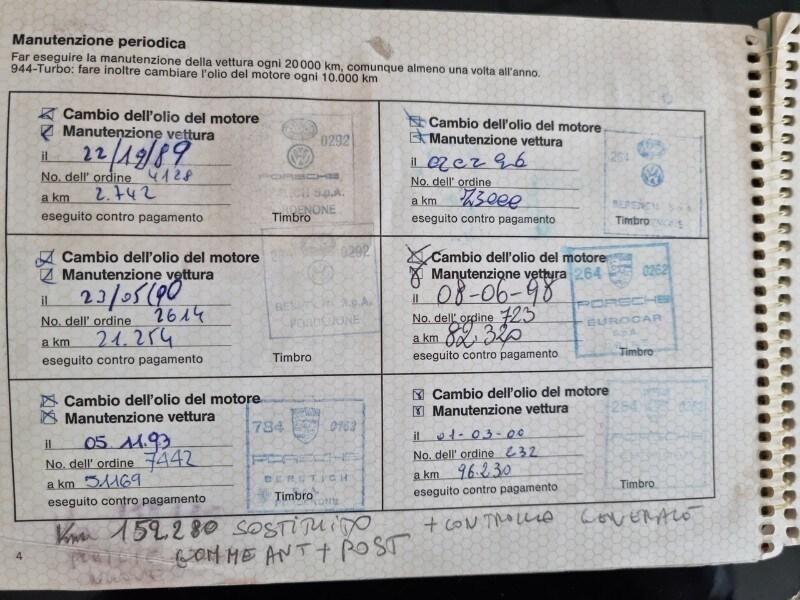 Manutenzione periodica
Far eseguire la manutenzione della vettura ogni 20000 km, comunque almeno una volta all'anno.
944-Turbo: fare inoltre cambiare l'olio del motore ogni 10.000 km
Cambio dell'olio del motore
Manutenzione vettura
il 22/12/89
No. dell' ordine 4128
a km 2.742
eseguito contro pagamento
Timbro
0292
PORSCHE
S.p.A.
PORDENONE
Cambio dell'olio del motore
Manutenzione vettura
il 23/05/90
No. dell' ordine 2614
a km 21.254
eseguito contro pagamento
Timbro
0292
S.p.A.
PORDENONE
Cambio dell'olio del motore
Manutenzione vettura
il 05 11.93
No. dell' ordine 7442
a km 51169
eseguito contro pagamento
Timbro
784
PORSCHE
PORDENONE
Cambio dell'olio del motore
Manutenzione vettura
il 96
No. dell' ordine
a km 73000
eseguito contro pagamento
Timbro
264
Cambio dell'olio del motore
Manutenzione vettura
il 08-06-98
No. dell' ordine 723
a km 82.320
eseguito contro pagamento
Timbro
264 0262
PORSCHE
EUROCAR
S.p.A.
Cambio dell'olio del motore
Manutenzione vettura
il 01-03-00
No. dell' ordine 232
a km 96.230
eseguito contro pagamento
Timbro
Km 159.280 SOSTITUITO + CONTROLLO GENERALE
GOMME ANT + POST
NUOVE
4